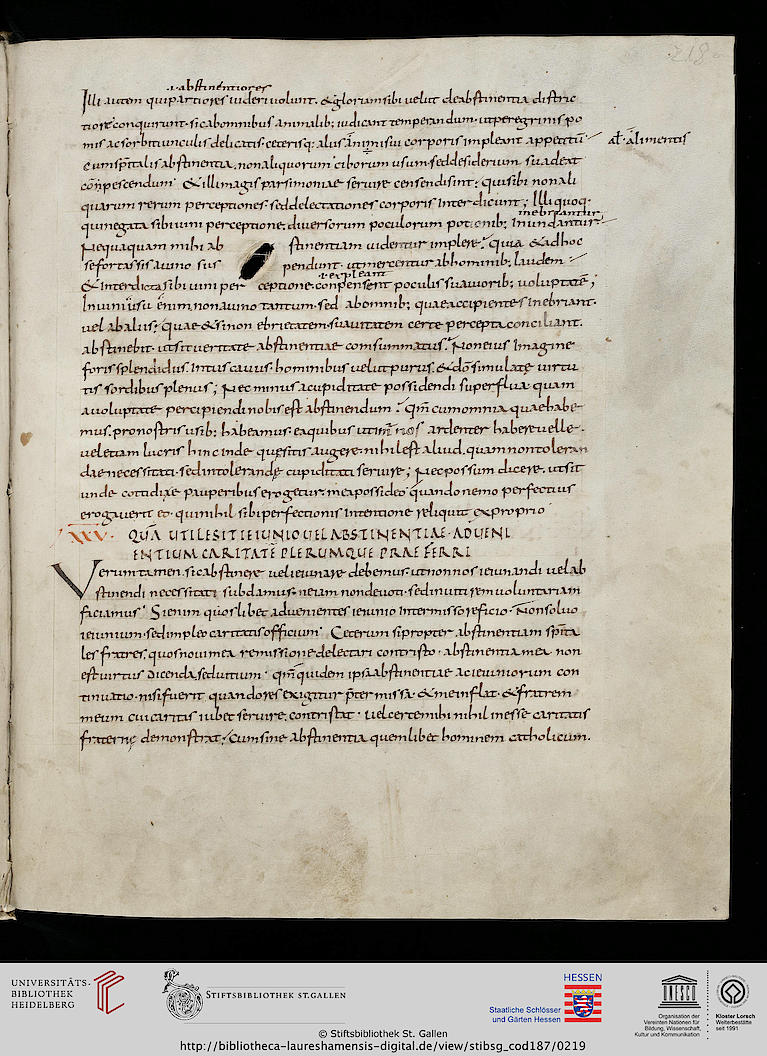 218
.i. abstinentiores
Illi autem qui parciores uideri uolunt. & gloriam sibi uelut de abstinentia distric
tiore conquirunt. sic ab omnibus animalib; iudicant temperandum. ut peregrinis po
mis ac sorbitiunculis delicatis. ceterisq; alus animi sui corporis impleant appetitū
al. alimentis
cum spitalis abstinentia. non aliquorum ciborum usum. sed desiderium suadeat
conpescendum. & illi magis parsimoniae seruire censendi sint. qui sibi non ali
quarum rerum perceptiones. sed delectationes corporis interdicunt; Illi quoq.
inebriantur
qui negata sibi uini perceptione. diuersorum poculorum potionib; inundantur.
Nequaquam mihi ab stinentiam uidentur implere. Quia & ad hoc
se fortassis a uino sus pendunt. ut mercentur ab hominib; laudem.
.i. expleant
& interdicta sibi uini per ceptione. conpensent poculis suauiorib; uoluptatē;
In uini usu enim. non a uino tantum. sed ab omnib; quae accipientes inebriant.
uel ab alus. Quae & si non ebrietatem. suauitatem certe percepta conciliant.
abstinebit. ut sit ueritate abstinentiae consummatus. Non eius imagine
foris splendidus. intus cauus. hominibus uelut purus. & dō simulate uirtu
tis sordibus plenus; Nec minus a cupiditate possidendi superflua quam
a uoluptate percipiendi nobis est abstinendum. Qm̄ cum omnia quae habe
mus. pro nostris usib; habeamus. ea quibus uti ardenter habere uelle.
uel etiam lucris hinc inde quęsitis augere. nihil est aliud. quam non toleran
dae necessitati. sed intolerandę cupiditati seruire; Nec possum dicere. ut sit
unde cotidiae pauperibus erogetur. mea possideo. quando nemo perfectius
erogauerit eo. qui nihil sibi perfectionis intentione reliquit ex proprio
XXV. QUĀ UTILE SIT IEIUNIO UEL ABSTINENTIAE. ADUENI
ENTIUM CARITATĒ PLERUMQUE PRAEFERRI
Veruntamen. sic abstinere uel ieiunare debemus. ut non nos ieiunandi uel ab
stinendi necessitati subdamus. ne iam non deuoti. sed inuiti rem uoluntariam
faciamus. Si enim quoslibet aduenientes ieiunio intermisso reficio. Non soluo
ieiunium. sed impleo caritatis officium. Ceterum si propter abstinentiam spita
les fratres. quos noui mea remissione delectari contristo. abstinentia mea non
est uirtus dicenda. sed uitium. qm̄ quidem ipsa abstinentiae ac ieiuniorum con
tinuatio. nisi fuerit quando res exigitur pter missa. & me inflat. & fratrem
meum cui caritas iubet seruire. contristat. uel certe mihi nihil inesse caritatis
fraternę demonstrat. Cum sine abstinentia quemlibet hominem catholicum.
UNIVERSITÄTS-
BIBLIOTHEK
HEIDELBERG
STIFTSBIBLIOTHEK ST.GALLEN
HESSEN
Staatliche Schlösser
und Gärten Hessen
UNESCO
Organisation der
Vereinten Nationen für
Bildung, Wissenschaft,
Kultur und Kommunikation
Kloster Lorsch
Welterbestätte
seit 1991
© Stiftsbibliothek St. Gallen
http://bibliotheca-laureshamensis-digital.de/view/stibsg_cod187/0219